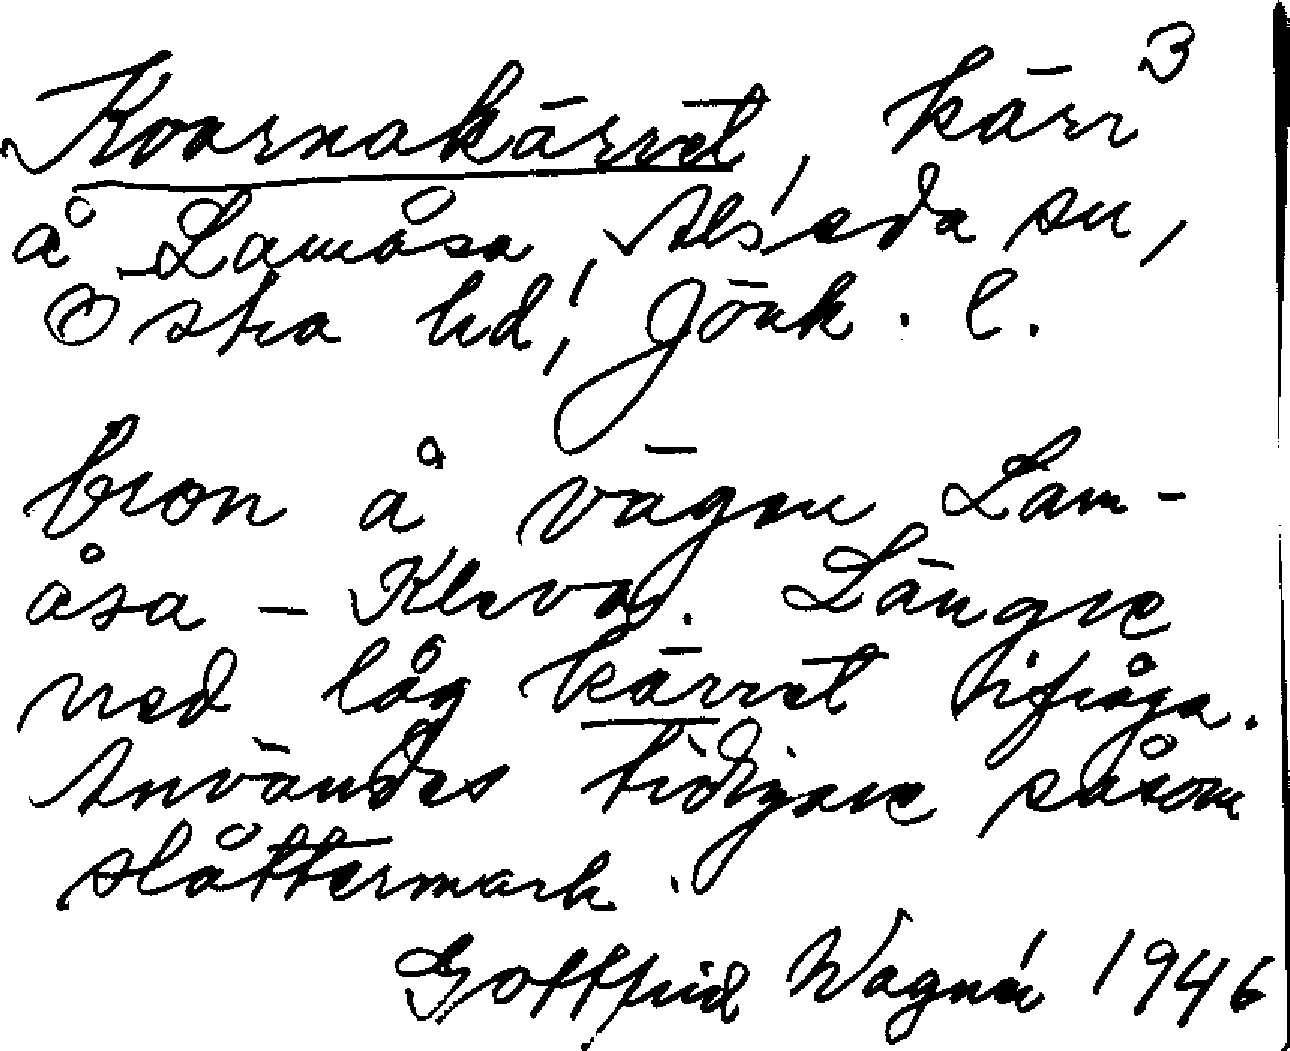 Kvarnakärret, kärr 3
å Lamåsa, Alseda sn,
Östra hd, Jönk. l.
bron å vägen Lam-
åsa - Kleva. Längre
ned låg kärret ifråga.
Användes tidigare såsom
slåttermark.
Gottfrid Wagnér 1946